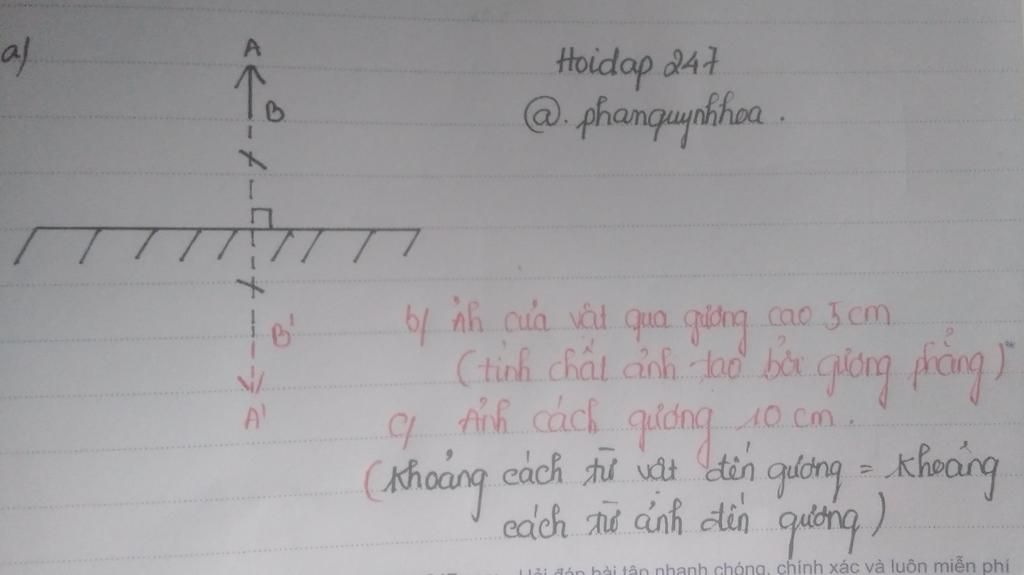 a)
A
Hoidap 247
B
@. phanquynhhoa.
b) Ảnh của vật qua gương cao 5cm
B'
(tính chất ảnh tạo bởi gương phẳng)
A'
c) Ảnh cách gương 10 cm.
(Khoảng cách từ vật đến gương = Khoảng
cách từ ảnh đến gương)
Hỏi đáp bài tập nhanh chóng, chính xác và luôn miễn phí